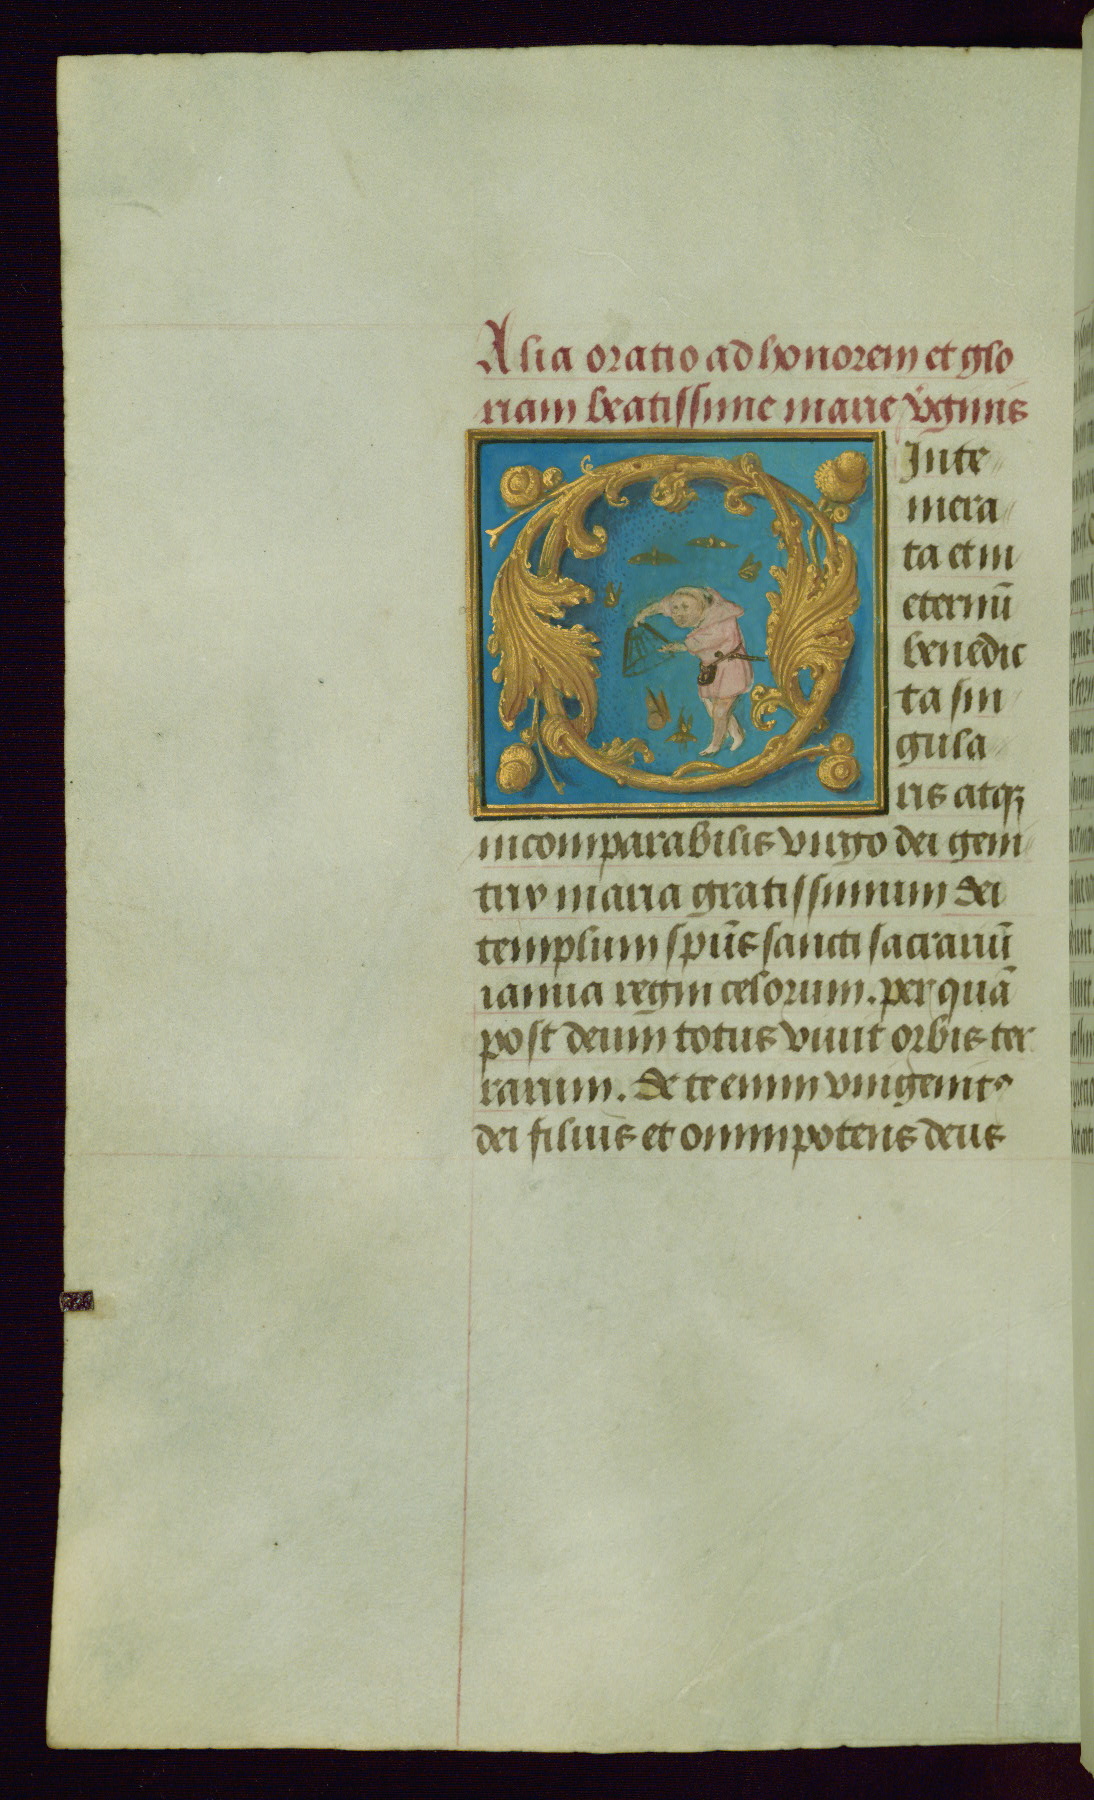 Alia oratio ad honorem et glo
riam beatissime marie v̄ginis
O
Inte
mera
ta et in
eternū
benedic
ta sin
gula
ris atqꝫ
incomparabilis virgo dei geni
trix maria gratissimum dei
templum spūs sancti sacrariū
ianua regni celorum. per quā
post deum totus viuit orbis ter
rarum. De te enim vnigenitꝰ
dei filius et omnipotens deus